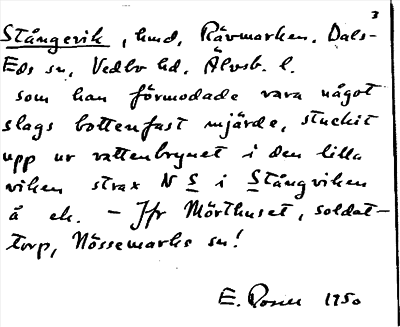 3
Stångevik, hmd, Rävmarken. Dals-
Eds sn, Vedbo hd. Älvsb. l.
som han förmodade vara något
slags bottenfast mjärde, stuckit
upp ur vattenbrynet i den lilla
viken strax N S i Stångviken
å ek. – Jfr Mörthuset, soldat-
torp, Nössemarks sn!
E. 1950